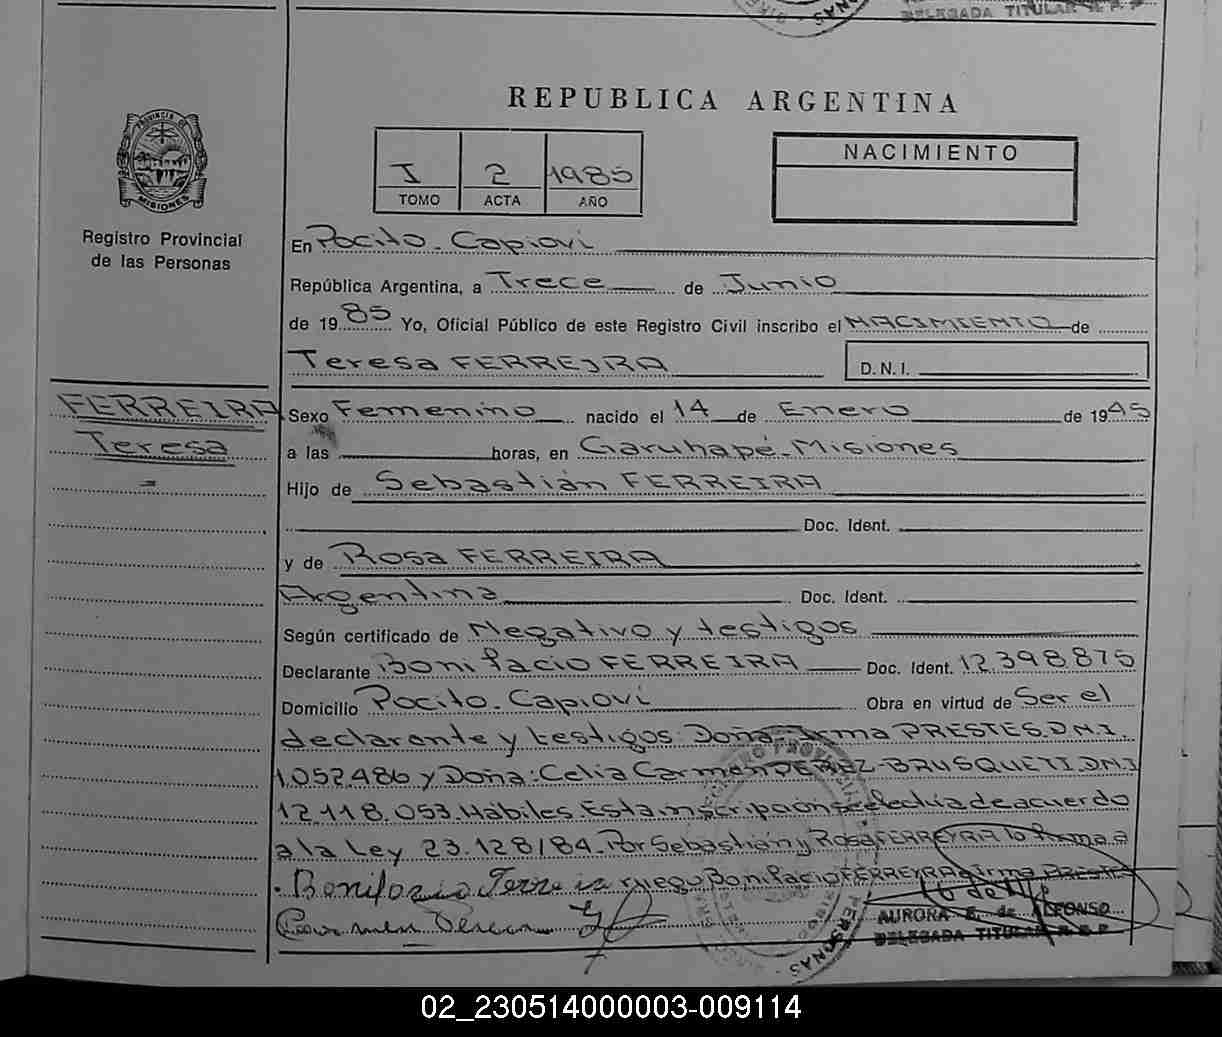 DELEGADA TITULAR R. P. P.
REPUBLICA ARGENTINA
PROVINCIA DE MISIONES
Registro Provincial
de las Personas
I 2 1985
TOMO ACTA AÑO
NACIMIENTO
En Pocito - Capioví
República Argentina, a Trece de Junio
de 1985 Yo, Oficial Público de este Registro Civil inscribo el NACIMIENTO de
Teresa FERREIRA D.N.I.
FERREIRA
Teresa
Sexo Femenino nacido el 14 de Enero de 1945
a las horas, en Garuhapé - Misiones
Hijo de Sebastián FERREIRA
Doc. Ident.
y de Rosa FERREIRA
Argentina Doc. Ident.
Según certificado de Negativo y testigos
Declarante Bonifacio FERREIRA Doc. Ident. 12.398.875
Domicilio Pocito - Capioví Obra en virtud de Ser el
declarante y testigos: Doña: Irma PRESTES, D.N.I.
1.052.486 y Doña: Celia Carmen PEREZ - BRUSQUETI, D.N.I
12.118.053. Hábiles. Esta inscripción se efectúa de acuerdo
a la Ley 23.128/84. Por Sebastián y Rosa FERREYRA lo firma a
ruego Bonifacio FERREYRA firma
AURORA E. de ALFONSO
DELEGADA TITULAR R. P. P.
PERSONAS
02_230514000003-009114